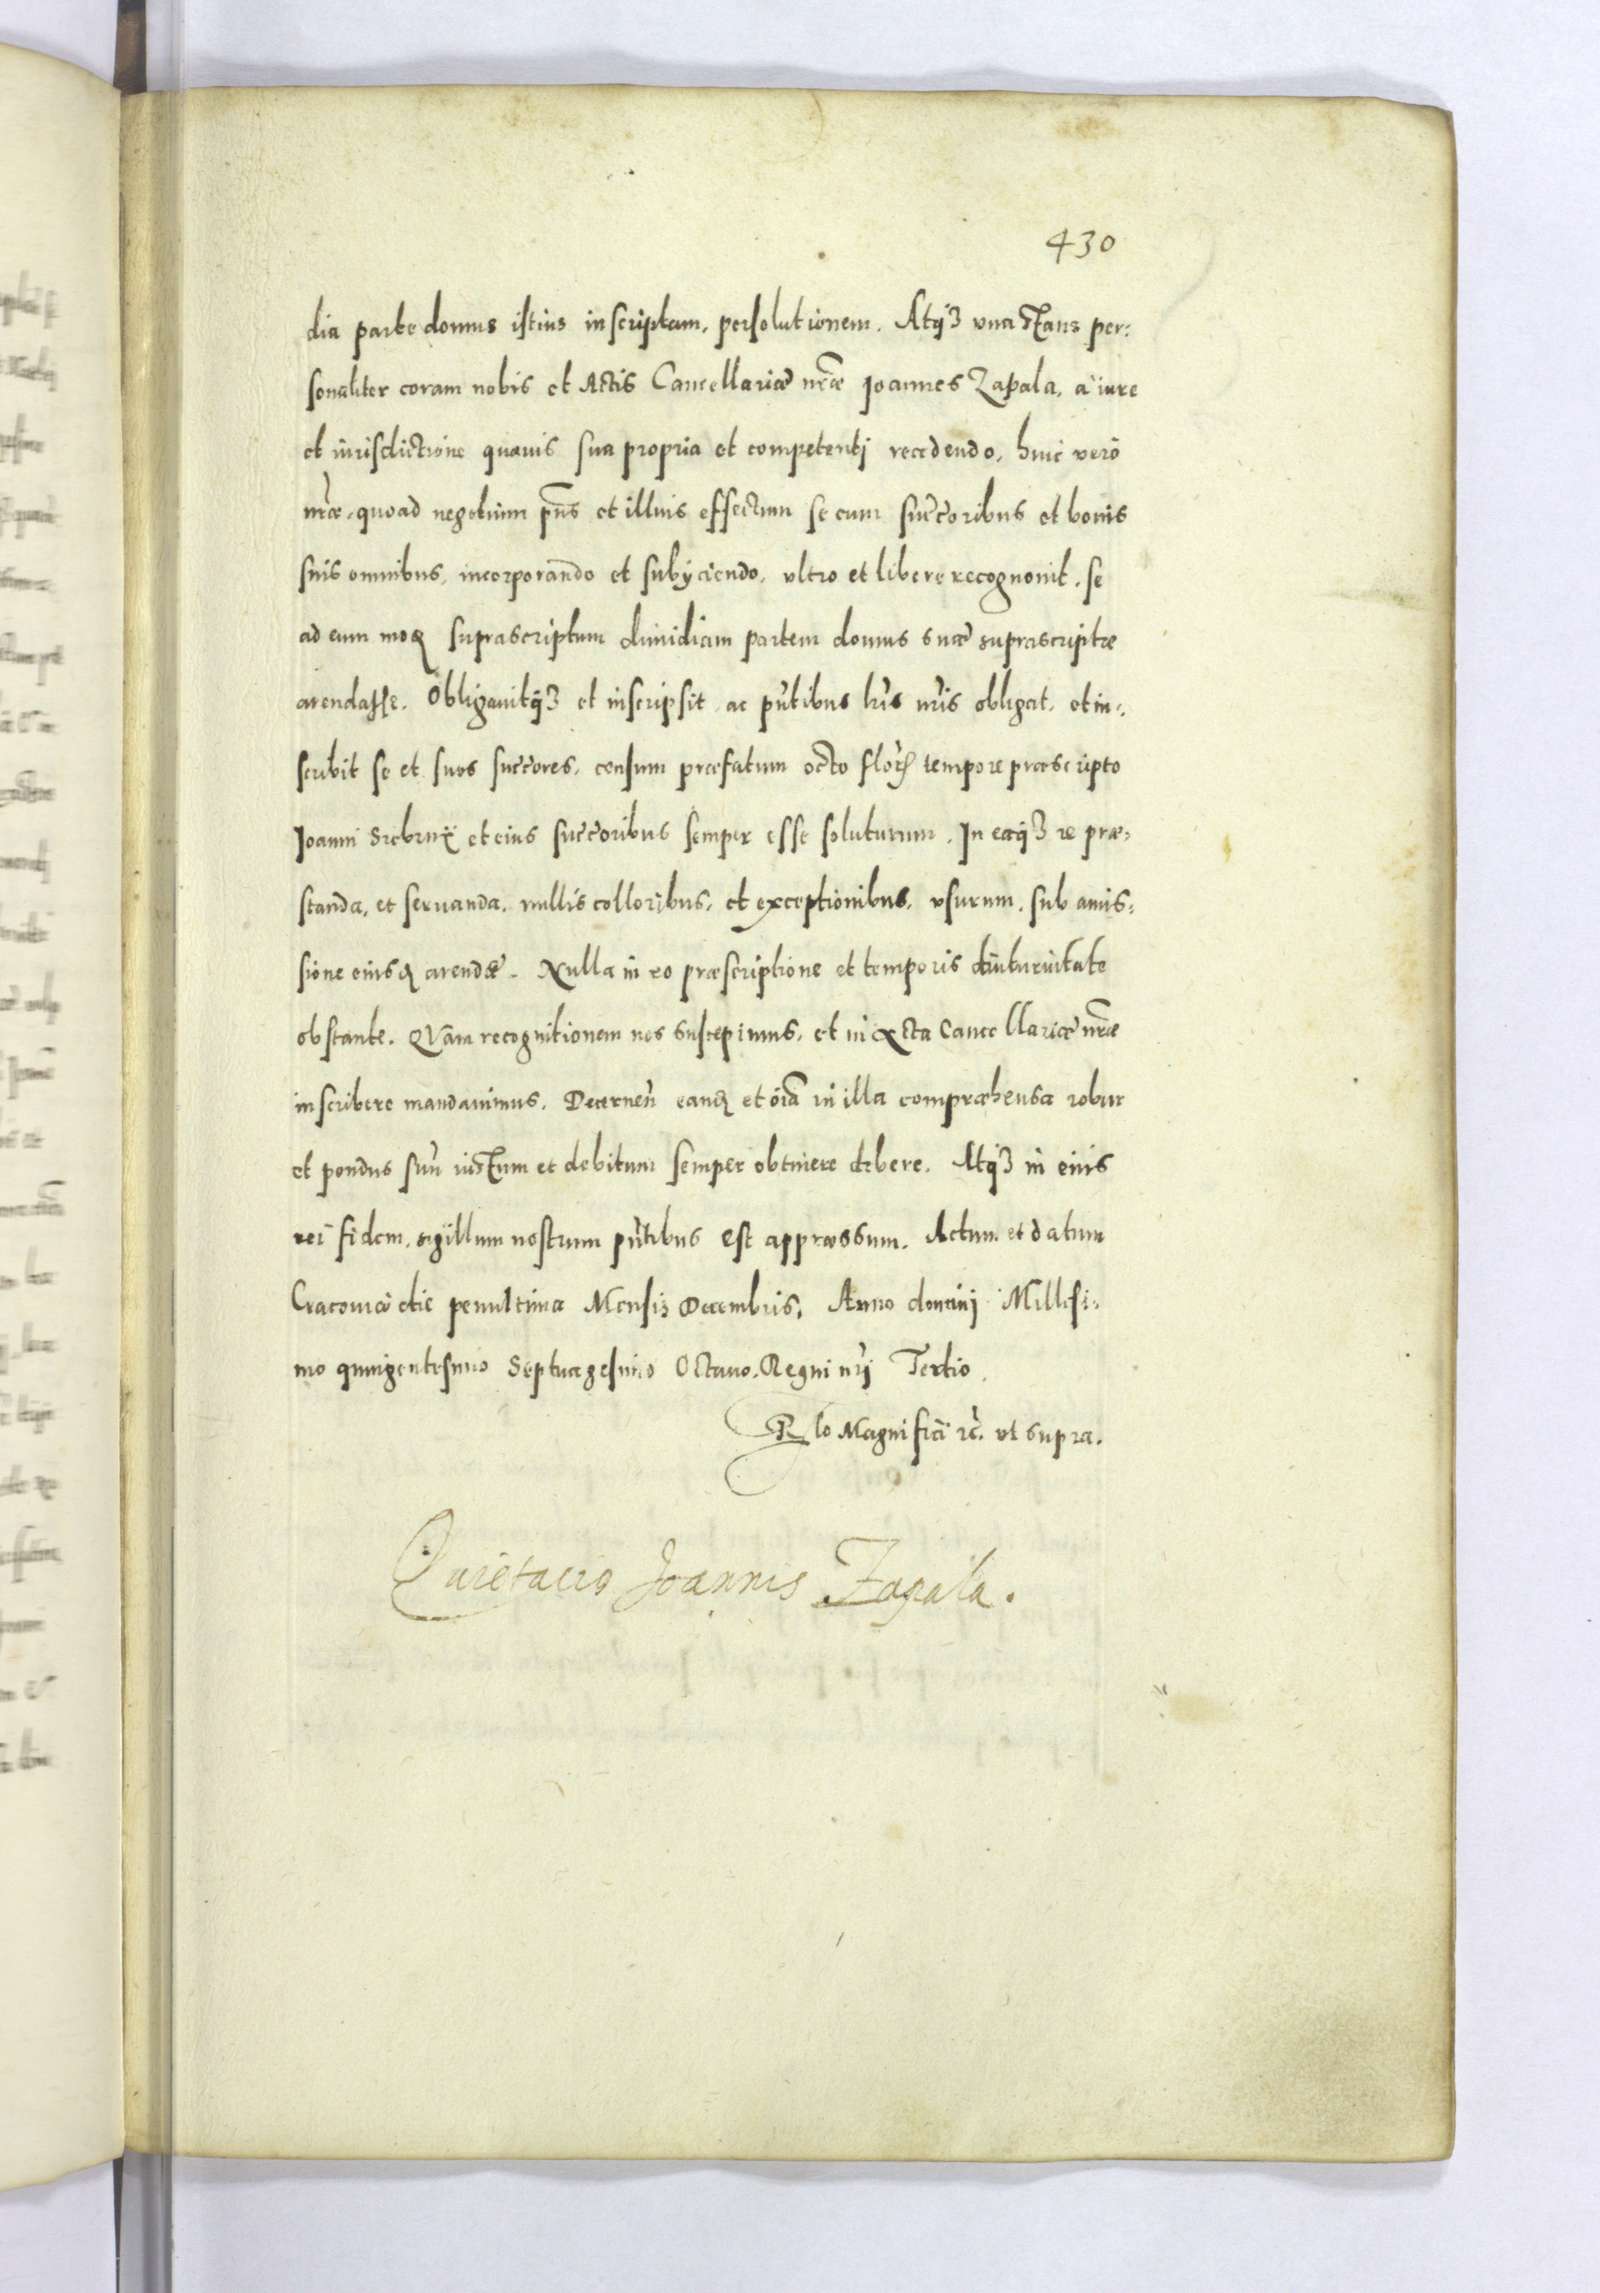 430
dia parte domus istius inscriptam, persolutionem. Atq3 una stans per:
sonaliter coram nobis et Actis Cancellariæ nr̃æ Joannes Zapala, a iure
et iurisdictione quauis sua propria et competentj recedendo, huic vero
nr̃æ, quoad negotium pñs et illius effectum se cum succ̃oribus et bonis
suis omnibus, incorporando et subÿciendo, ultro et libere recognouit, se
ad eum moꝗ suprascriptum dimidiam partem domus suæ suprascriptæ
arendasse. Obligauitq3 et inscripsit, ac pñtibus lr̃is nr̃is obligat, et in:
scribit se et suos succ̃ores, censum præfatum octo flor̃ tempore præscripto
Joanni et eius succ̃oribus semper esse soluturum. In eaq3 re præ:
standa, et seruanda, nullis colloribus, et exceptionibus, usurum, sub amis:
sione eiusꝗ arendæ. Nulla in eo præscriptione et temporis diuturnitate
obstante. QVam recognitionem nos suscepimus, et in Acta Cancellariæ nr̃æ
inscribere mandauimus. Decernen̄ eanꝗ et oĩa in illa compræhensa robur
et pondus suū iustum et debitum semper obtinere debere. Atq3 in eius
rei fidem, sigillum nostrum pñtibus est appræssum. Actum et datum
Cracouiæ die penultima Mensis Decembris, Anno dominj Millesi:
mo quingentesimo Septuagesimo Octauo. Regni nr̃j Tertio.
Rlo Magnifici ꝛc̃. ut supra.
Quietacio Joannis Zapala.